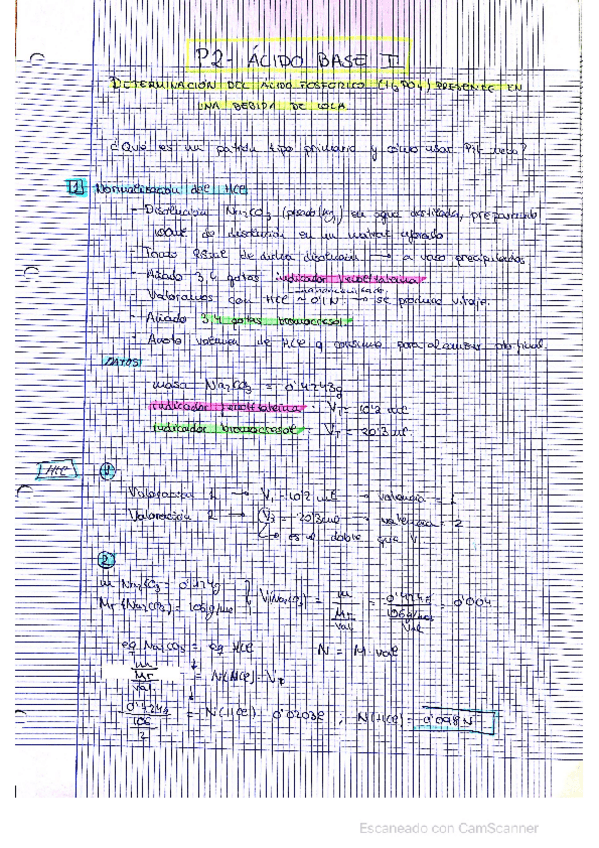 P2- ÁCIDO BASE II
DETERMINACIÓN DEL ÁCIDO FOSFÓRICO (H3PO4) PRESENTE EN
UNA BEBIDA DE COLA
¿Qué es un patrón tipo primario y cómo usar
1 Normalización del HCl
- Disolución Na2CO3 (pesado) en agua destilada, preparando
100ml de disolución en un matraz aforado
- Tomo 25ml de dicha disolución → a vaso precipitados
- Añado 3,4 gotas indicador fenolftaleina
- Valoramos con HCl ~ 0'1N → se produce viraje.
- Añado 3,4 gotas bromocresol.
- Anoto volumen de HCl q consumo para alcanzar pto final.
DATOS
masa Na2CO3 = 0'4243g
indicador fenolftaleina : VT = 10'2 ml
indicador bromocresol : VT = 20'3 ml
HCl 1
Valoración 1 → V1 = 10'2 ml → valencia = 1
Valoración 2 → V2 = 20'3ml → valencia = 2
↳ es el doble que V
2
m Na2CO3 =
Mr (Na2CO3) = 106g/mol
V(Na2CO3) = m / Mr/val = 106g/mol / val = 0'004
eq Na2CO3 = eq HCl N = M · val
m / Mr/val = N(HCl) · VT
106 / 2 = N(HCl) · 0'0203l ; N(HCl) = 0'098 N
Escaneado con CamScanner